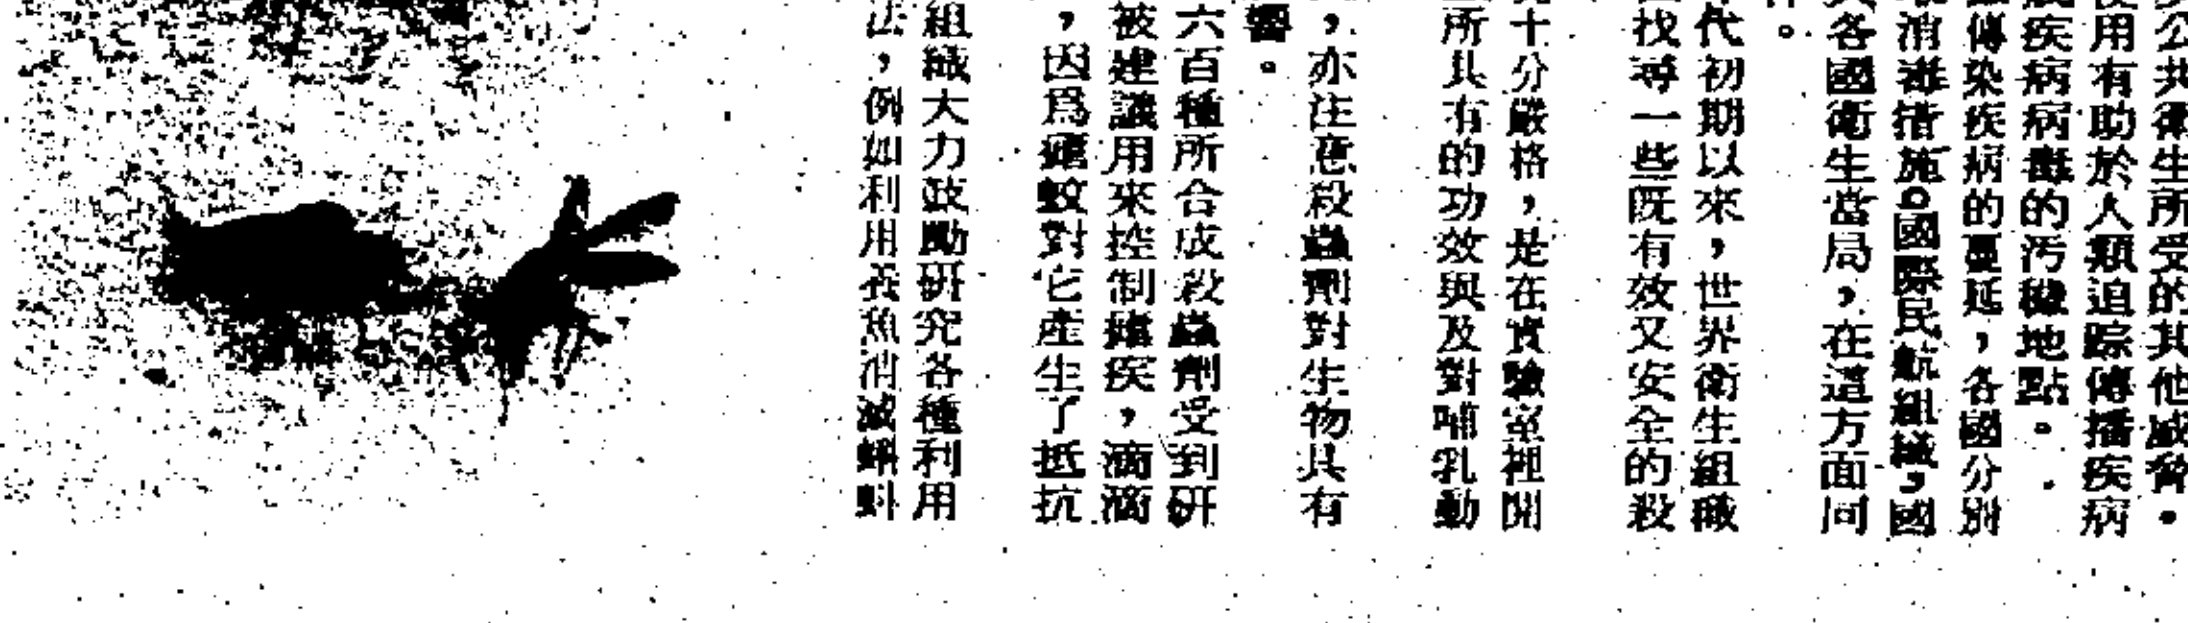 公共衛生所受的其他威脅。
使用有助於人類追踪傳播疾病
疾病病毒的污穢地點。
傳染疾病的蔓延，各國分別
消毒措施。國際民航組織，國
各國衛生當局，在這方面同
。
代初期以來，世界衛生組織
找尋一些既有效又安全的殺
十分嚴格，是在實驗室裡開
所具有的功效與及對哺乳動
，亦注意殺蟲劑對生物具有
響。
六百種所合成殺蟲劑受到研
被建議用來控制瘧疾，滴滴
，因爲瘧蚊對它產生了抵抗
組織大力鼓勵研究各種利用
法，例如利用養魚消滅蝌蚪